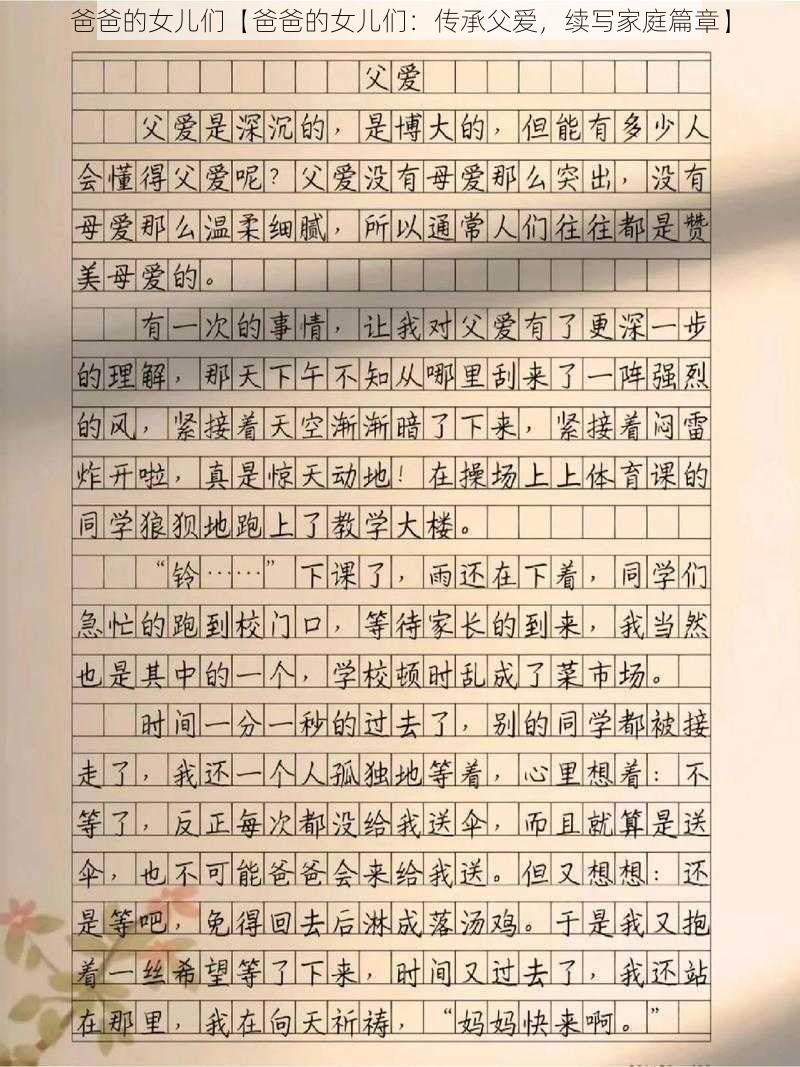 爸爸的女儿们【爸爸的女儿们：传承父爱，续写家庭篇章】
父爱
父爱是深沉的，是博大的，但能有多少人
会懂得父爱呢？父爱没有母爱那么突出，没有
母爱那么温柔细腻，所以通常人们往往都是赞
美母爱的。
有一次的事情，让我对父爱有了更深一步
的理解，那天下午不知从哪里刮来了一阵强烈
的风，紧接着天空渐渐暗了下来，紧接着闷雷
炸开啦，真是惊天动地！在操场上上体育课的
同学狼狈地跑上了教学大楼。
“铃……”下课了，雨还在下着，同学们
急忙的跑到校门口，等待家长的到来，我当然
也是其中的一个，学校顿时乱成了菜市场。
时间一分一秒的过去了，别的同学都被接
走了，我还一个人孤独地等着，心里想着：不
等了，反正每次都没给我送伞，而且就算是送
伞，也不可能爸爸会来给我送。但又想想：还
是等吧，免得回去后淋成落汤鸡。于是我又抱
着一丝希望等了下来，时间又过去了，我还站
在那里，我在向天祈祷，“妈妈快来啊。”